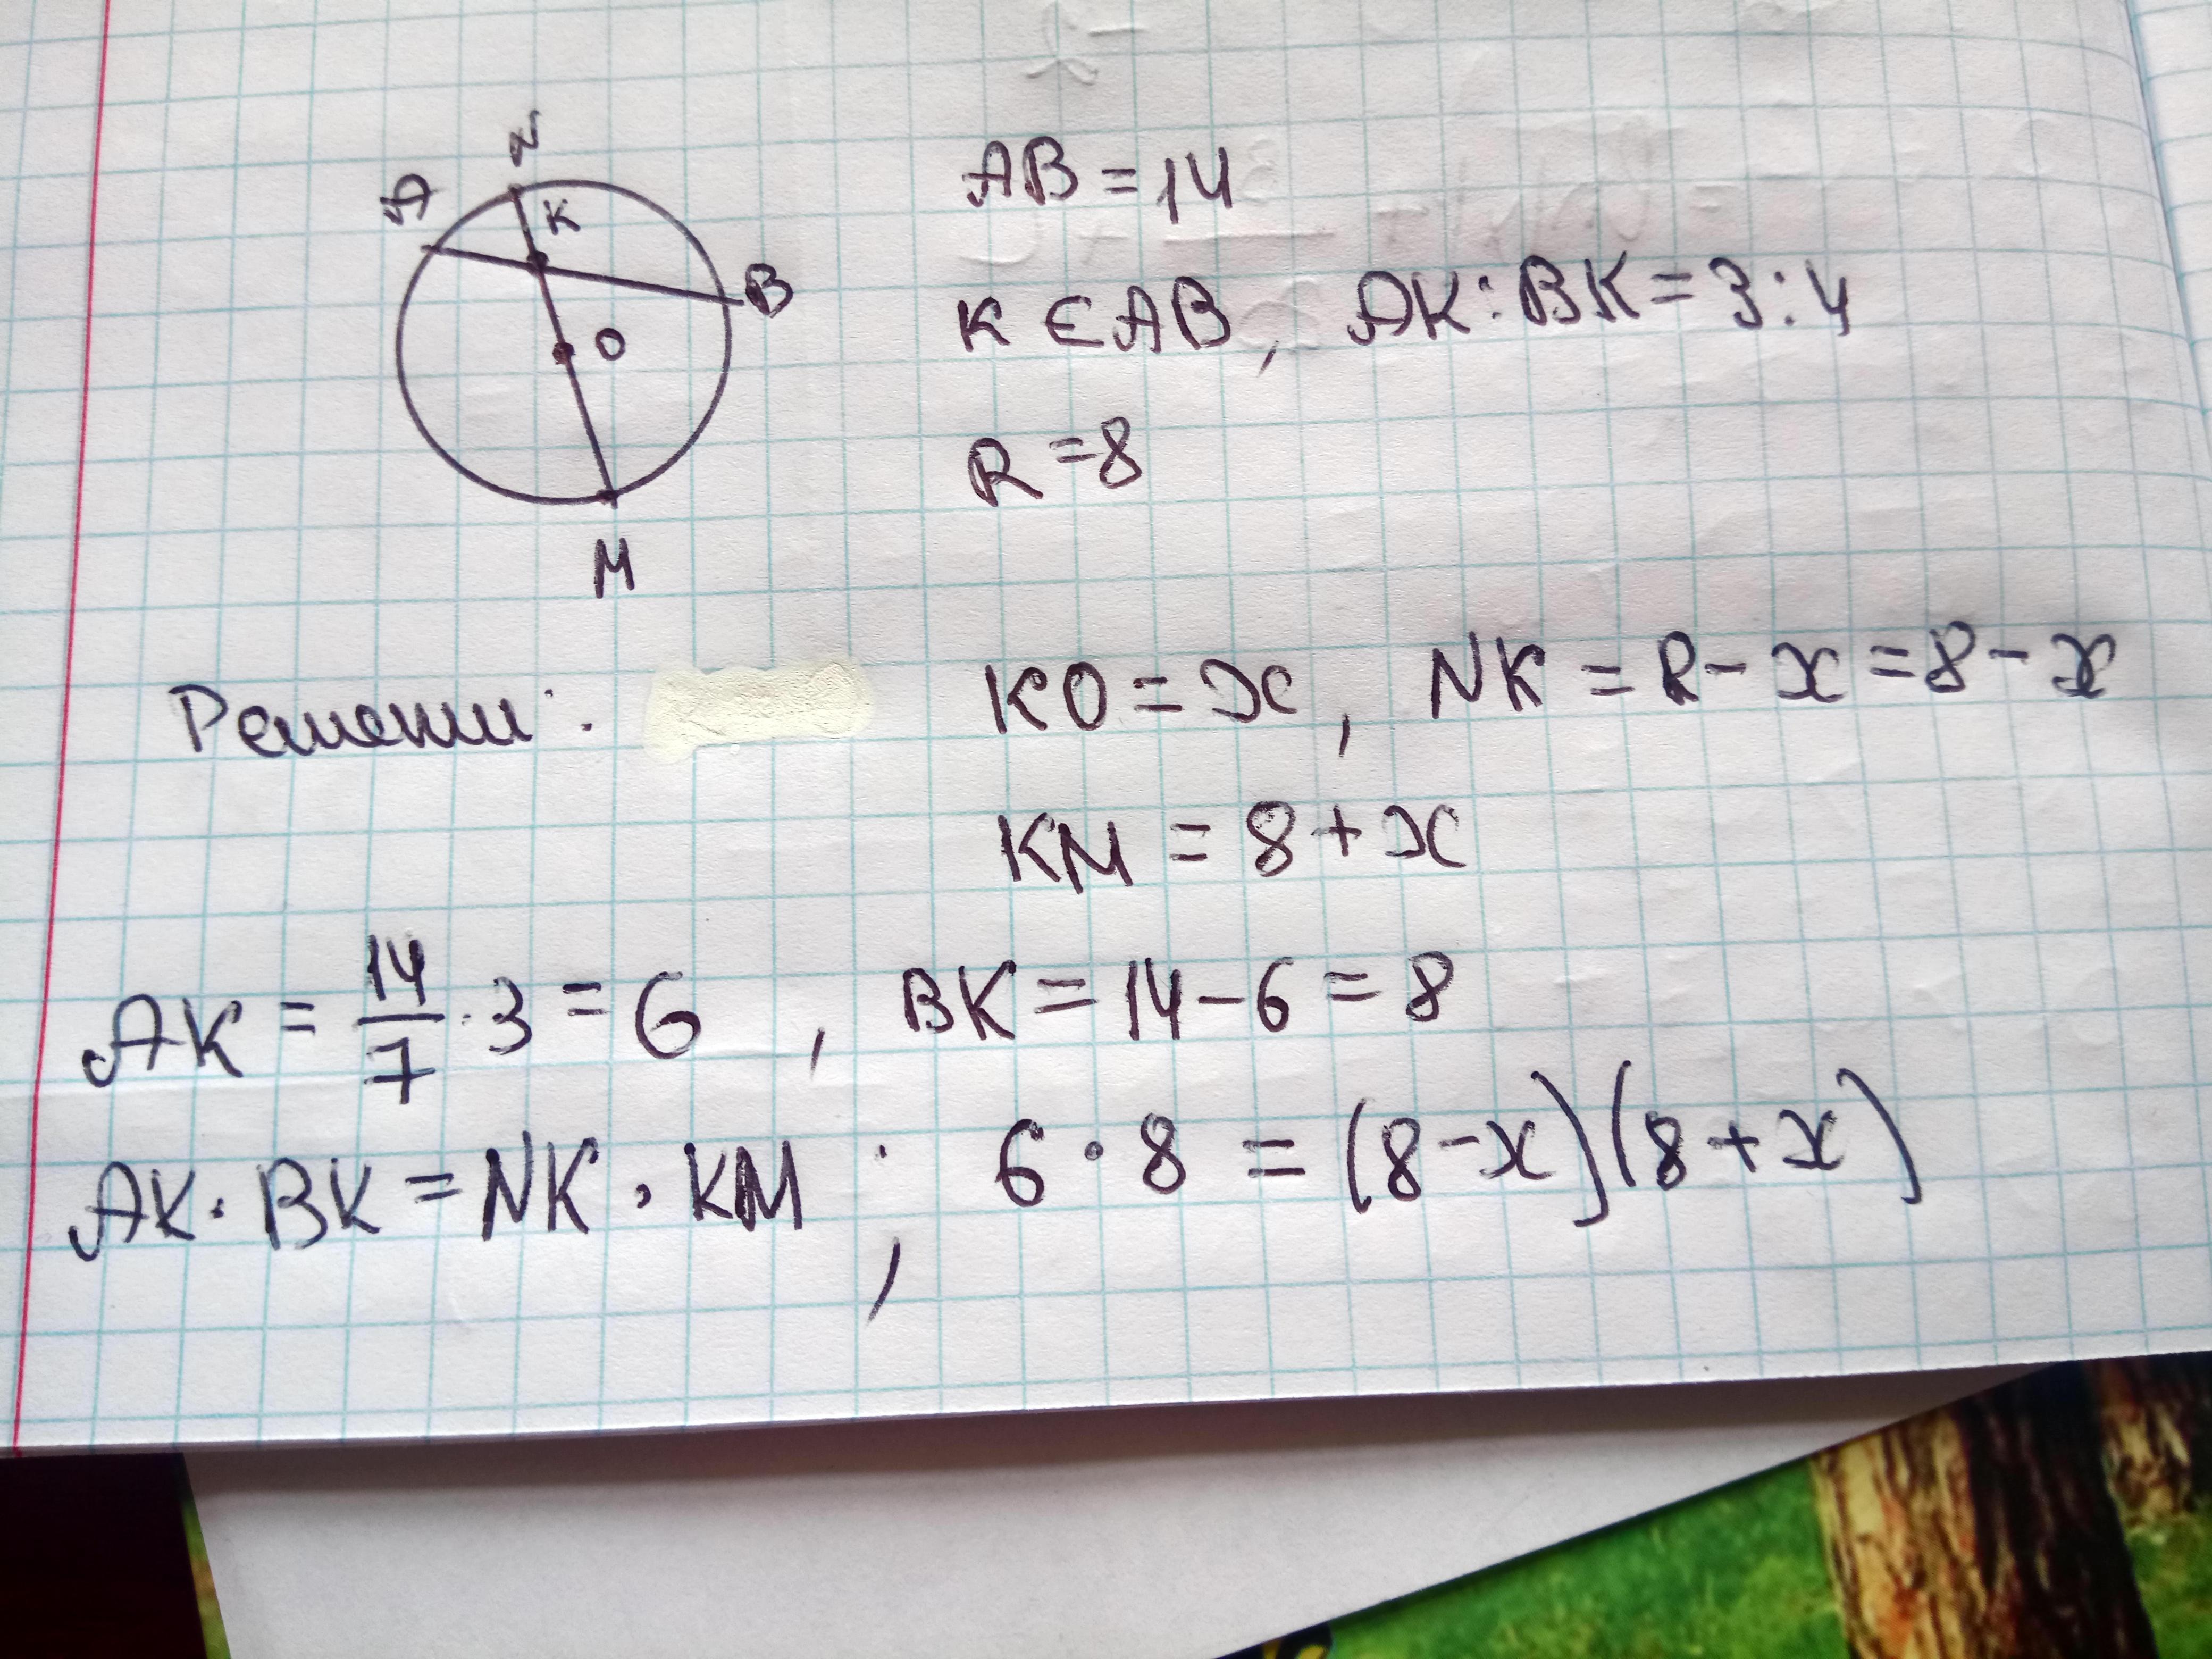 N
A
K
B
O
M
AB = 14
K ∈ AB, AK : BK = 3 : 4
R = 8
Решени: KO = x, NK = R - x = 8 - x
KM = 8 + x
AK = 14/7 · 3 = 6, BK = 14 - 6 = 8
AK · BK = NK · KM ; 6 · 8 = (8 - x)(8 + x)